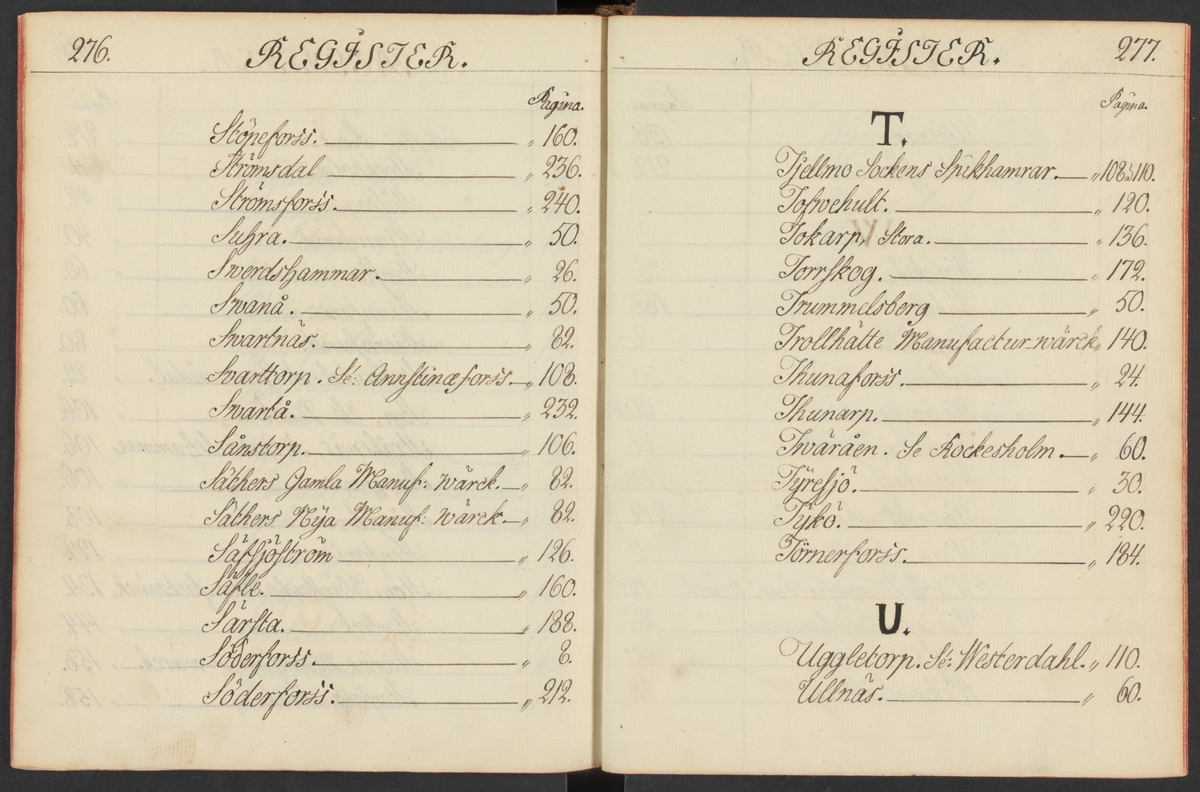 276.
REGISTER.
Pagina.
Stöpeforss. „ 160.
Strömsdal „ 236.
Strömsforss. „ 240.
Suhra. „ 50.
Swerdshammar. „ 26.
Swanå. „ 50.
Swartnäs. „ 82.
Svarttorp. Sé: Annstinæforss. „ 108.
Swartå. „ 232.
Sånstorp. „ 106.
Säthers Gamla Manuf: wärck. „ 82.
Säthers Nÿa Manuf: wärck. „ 82.
Säfsjöström „ 126.
Säfle. „ 160.
Särsta. „ 188.
Söderforss. „ 8.
Söderforss. „ 212.
REGISTER.
277.
Pagina.
T.
Tjellmo Sockens Spikhamrar. „ 108. 110.
Tofwehult. „ 120.
Tokarp, Stora. „ 136.
Torrskog. „ 172.
Trummelsberg „ 50.
Trollhätte Manufactur-wärck „ 140.
Thunaforss. „ 24.
Thunarp. „ 144.
Twäråen. Se Rockesholm. „ 60.
Tÿresjö. „ 30.
Tÿkö. „ 220.
Törnerforss. „ 184.
U.
Uggletorp. Sé: Westerdahl. „ 110.
Ullnäs. „ 60.